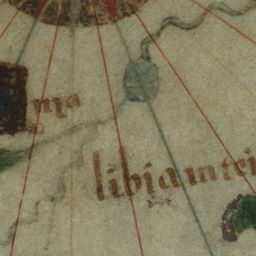 nya
libia interi